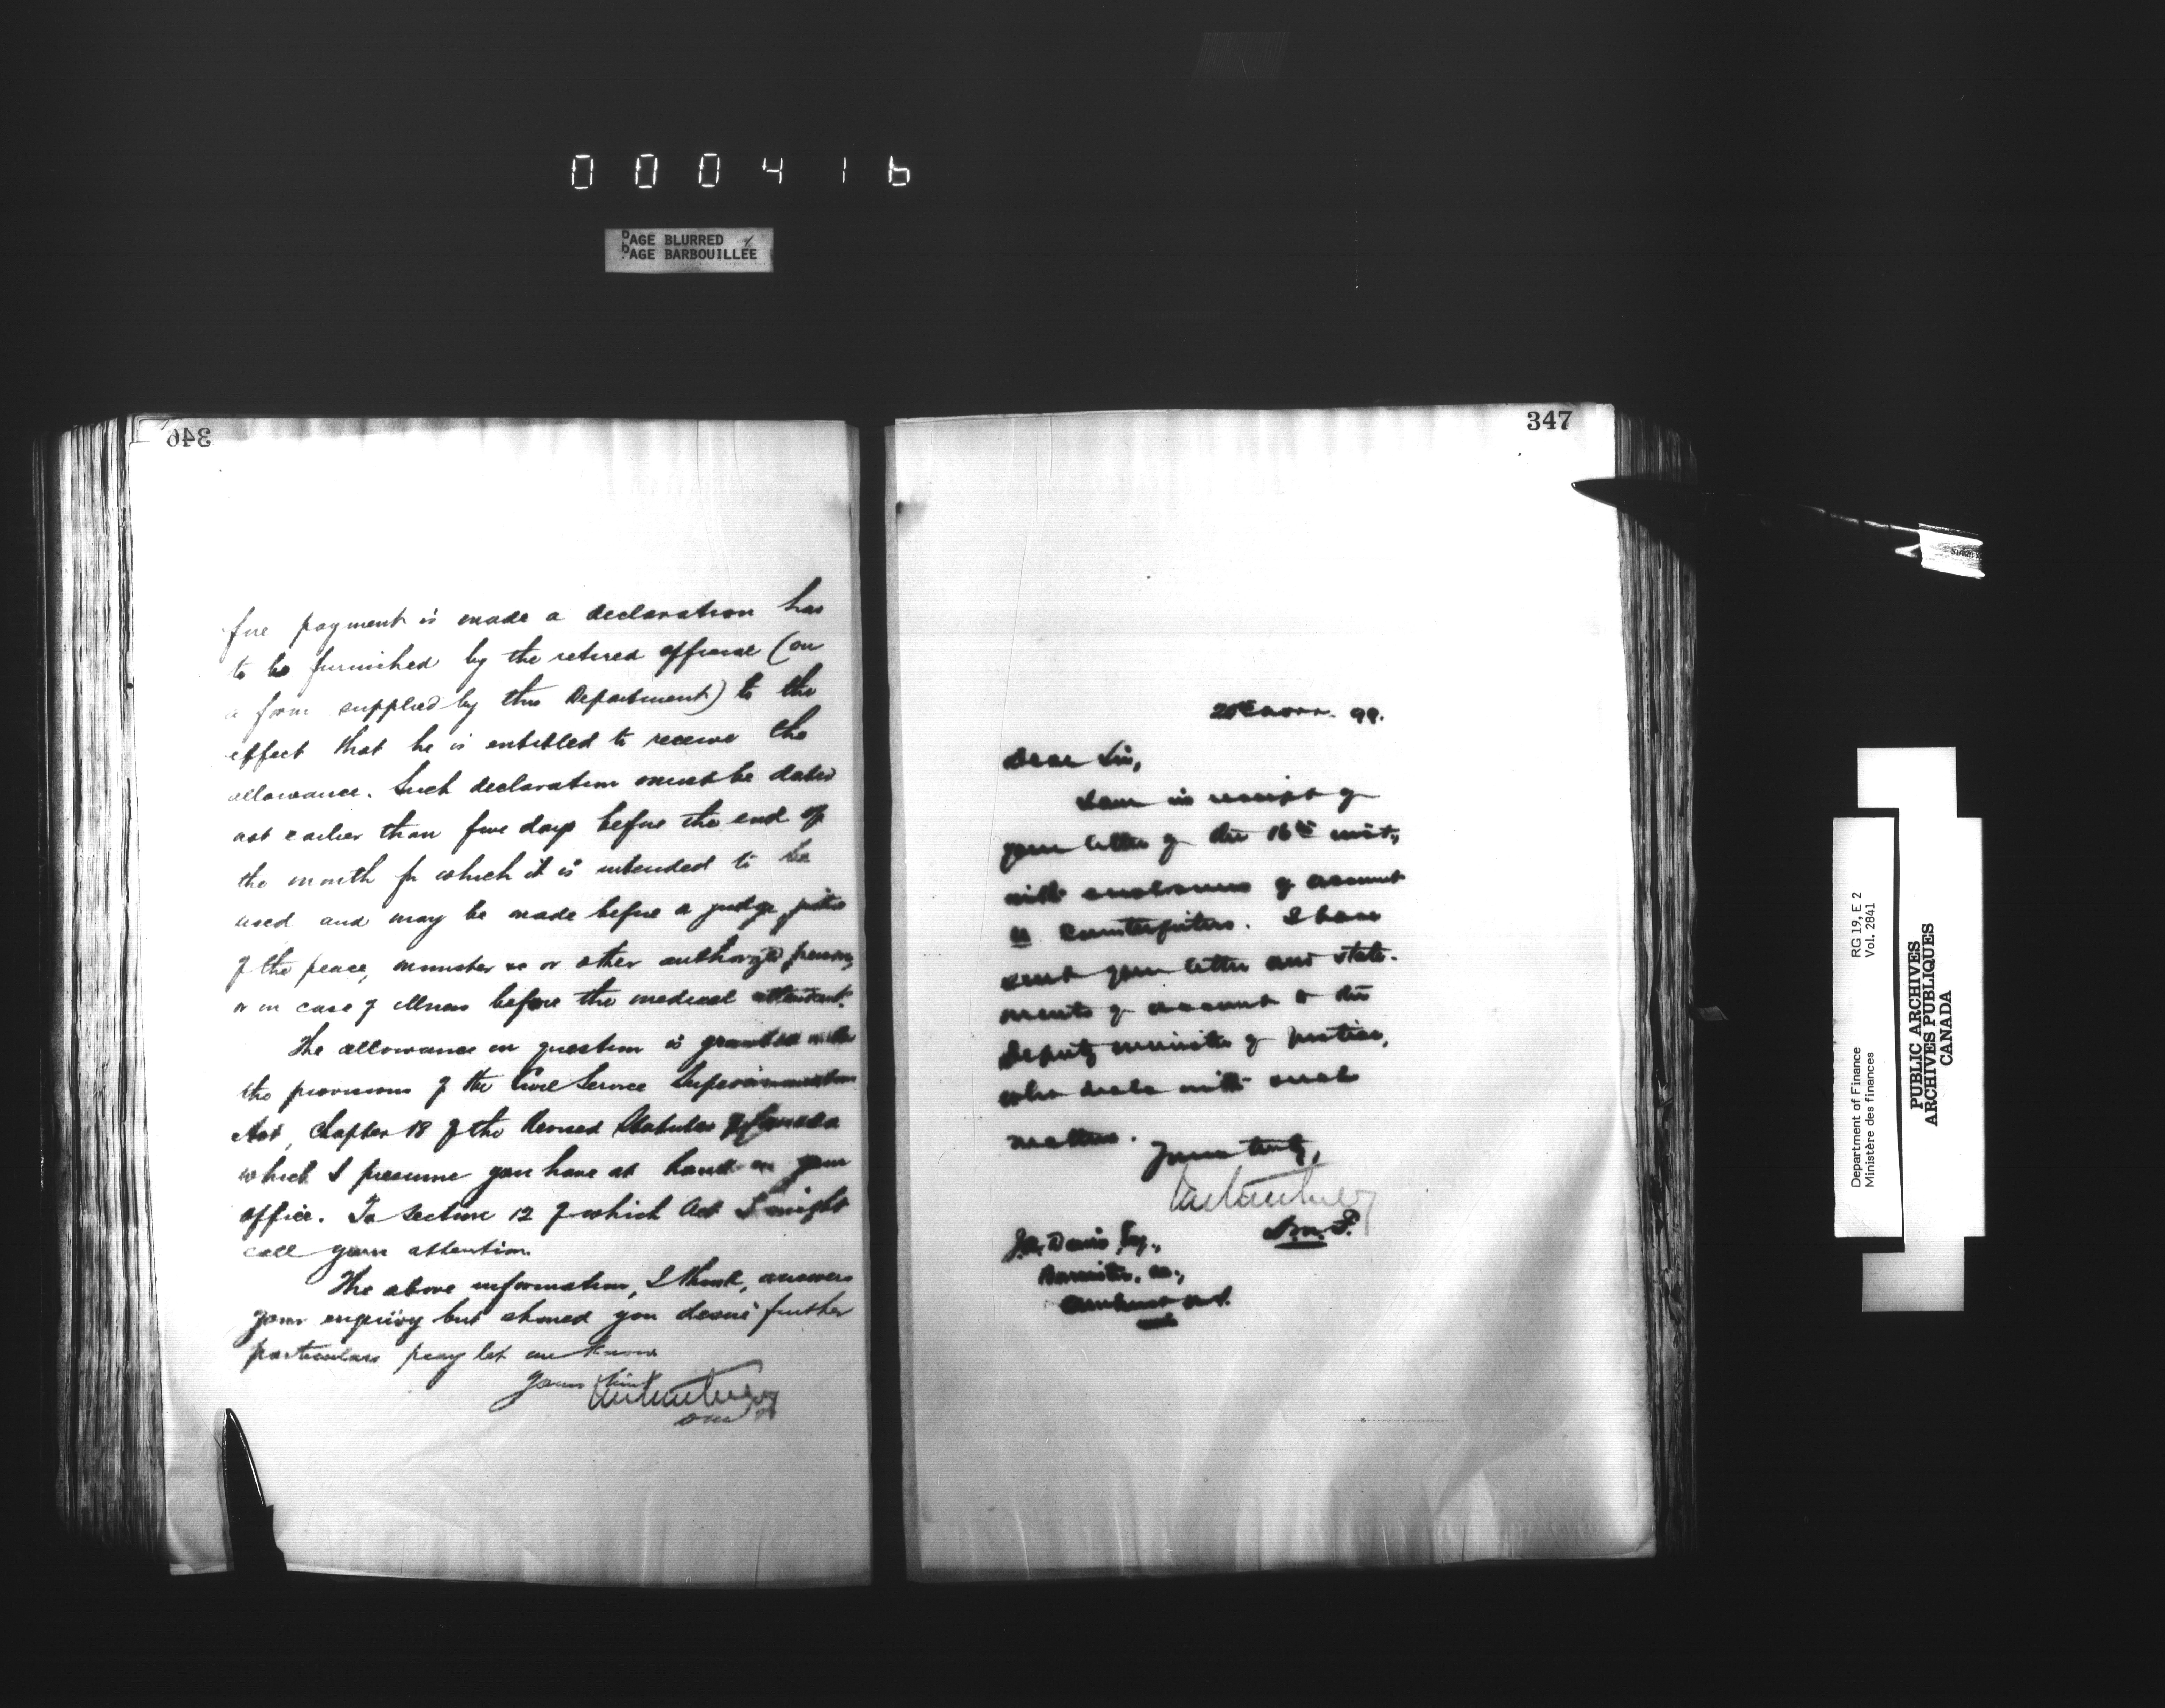 000416
PAGE BLURRED
PAGE BARBOUILLÉE
346
fore payment is made a declaration has
to be furnished by the retired official (on
a form supplied by this Department) to the
effect that he is entitled to receive the
allowance. Such declaration must be dated
not earlier than five days before the end of
the month for which it is intended to be
used and may be made before a judge, justice
of the peace, minister or other authorized person,
or in case of illness before the medical attendant.
The allowance in question is granted under
the provisions of the Civil Service Superannuation
Act, Chapter 18 of the Revised Statutes of Canada
which I presume you have at hand in your
office. To section 12 of which Act I might
call your attention.
The above information, I think, answers
your enquiry but should you desire further
particulars pray let me know
Yours truly
347
20th 99.
Dear Sir,
I am in receipt of
your letter of the 16th inst,
with enclosures of account
re Counterfeiters. I have
sent your letter and state-
ments of account to the
Deputy Minister of Justice,
who deals with such
matters.
Yours truly,
D.M.F.
J.A. Davis Esq.,
Barrister, &c.,
Amherst N.S.
Department of Finance RG 19, E 2
Ministère des finances Vol. 2841
PUBLIC ARCHIVES
ARCHIVES PUBLIQUES
CANADA